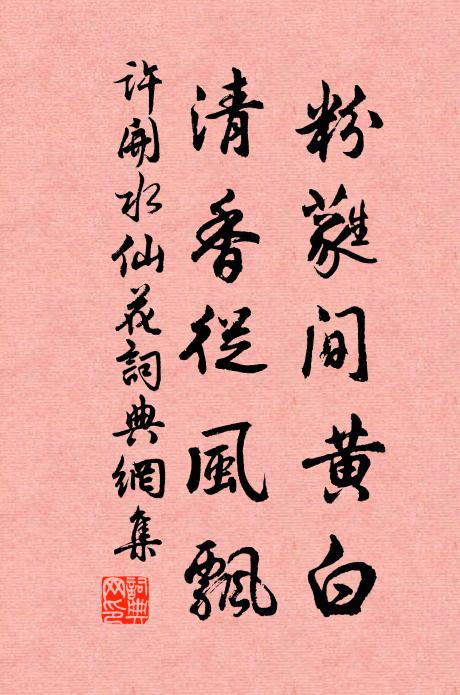 粉蕤間黄白
清香從風飄
許開水仙花詞典網集
詞典網印